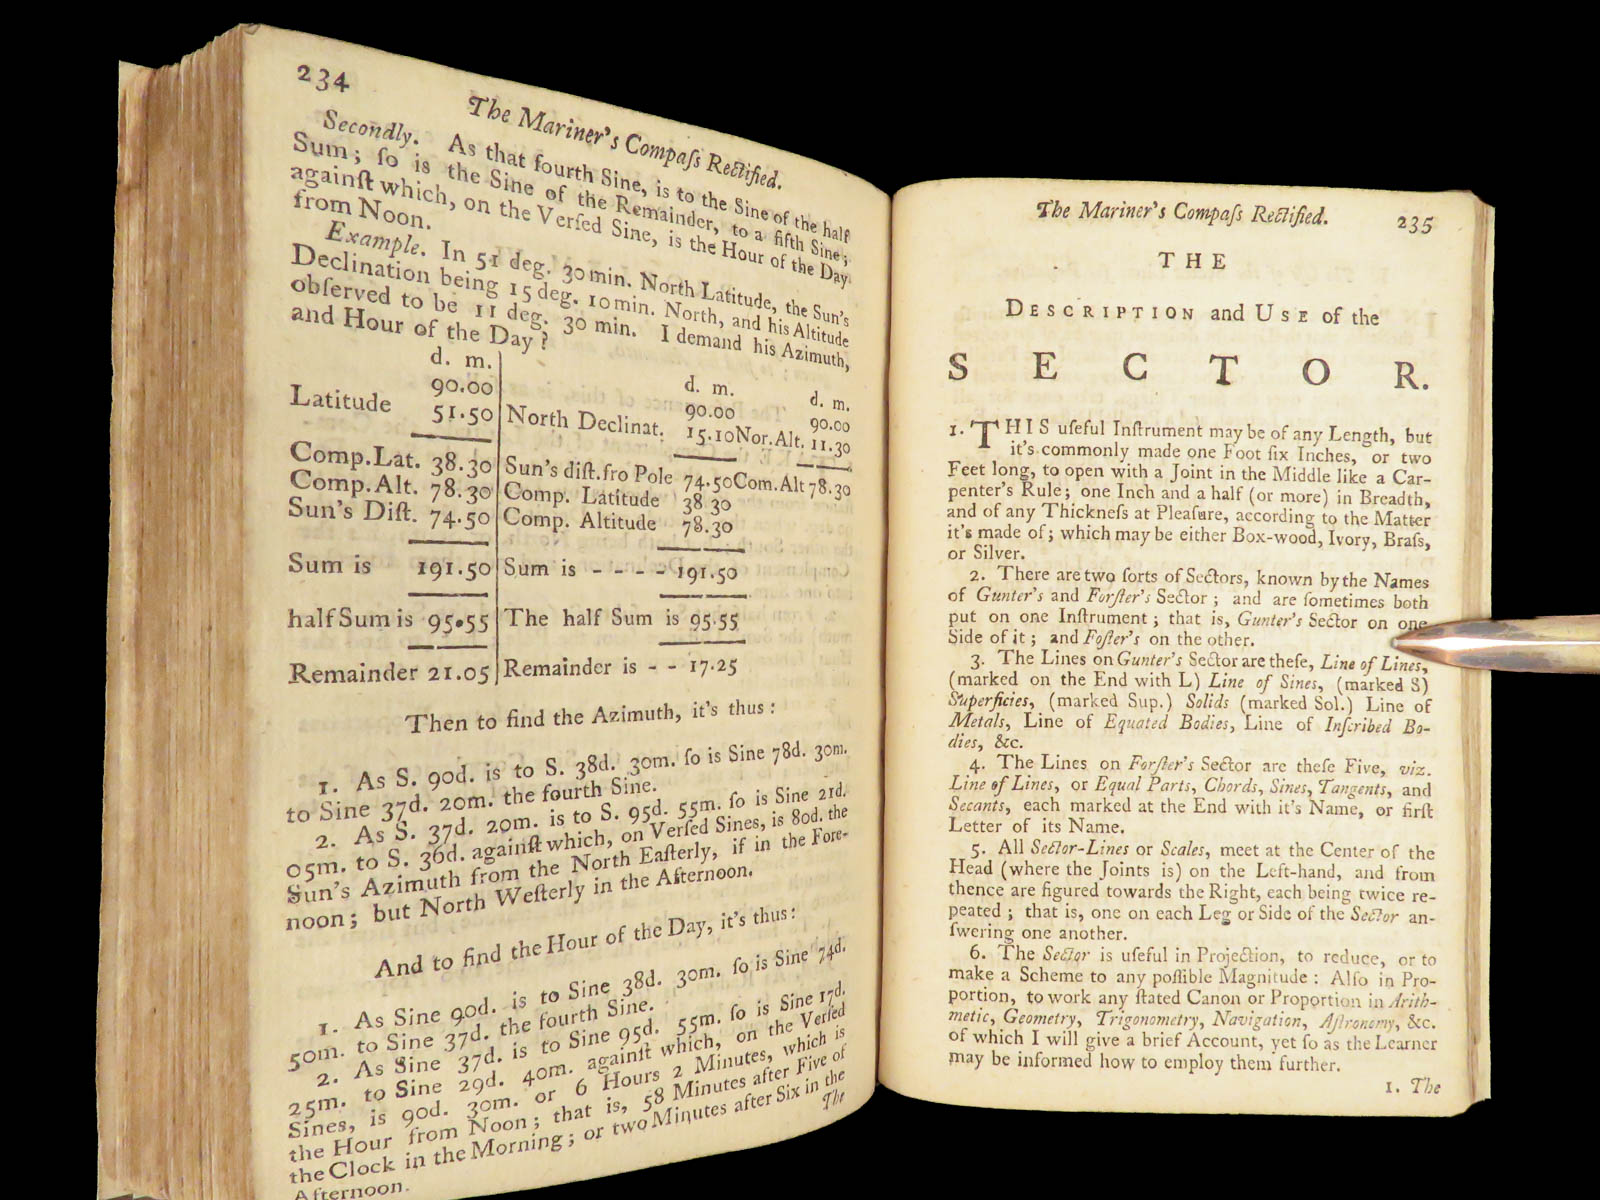 234
The Mariner's Compaſs Rectified.
Secondly. As that fourth Sine, is to the Sine of the half
Sum; ſo is the Sine of the Remainder, to a fifth Sine;
againſt which, on the Verſed Sine, is the Hour of the Day
from Noon.
Example. In 51 deg. 30 min. North Latitude, the Sun's
Declination being 15 deg. 10 min. North, and his Altitude
obſerved to be 11 deg. 30 min. I demand his Azimuth,
and Hour of the Day?
d. m.
90.00
Latitude 51.50
Comp. Lat. 38.30
Comp. Alt. 78.30
Sun's Diſt. 74.50
Sum is 191.50
half Sum is 95.55
Remainder 21.05
d. m. d. m.
90.00 90.00
North Declinat. 15.10 Nor. Alt. 11.30
Sun's diſt. fro Pole 74.50 Com. Alt 78.30
Comp. Latitude 38 30
Comp. Altitude 78.30
Sum is - - - - 191.50
The half Sum is 95.55
Remainder is - - 17.25
Then to find the Azimuth, it's thus:
1. As S. 90d. is to S. 38d. 30m. ſo is Sine 78d. 30m.
to Sine 37d. 20m. the fourth Sine.
2. As S. 37d. 20m. is to S. 95d. 55m. ſo is Sine 21d.
05m. to S. 36d. againſt which, on Verſed Sines, is 80d. the
Sun's Azimuth from the North Eaſterly, if in the Fore-
noon; but North Weſterly in the Afternoon.
And to find the Hour of the Day, it's thus:
1. As Sine 90d. is to Sine 38d. 30m. ſo is Sine 74d.
50m. to Sine 37d. the fourth Sine.
2. As Sine 37d. is to Sine 95d. 55m. ſo is Sine 17d.
25m. to Sine 29d. 40m. againſt which, on the Verſed
Sines, is 90d. 30m. or 6 Hours 2 Minutes, which is
the Hour from Noon; that is, 58 Minutes after Five of
the Clock in the Morning; or two Minutes after Six in the
Afternoon.
The
The Mariner's Compaſs Rectified. 235
THE
DESCRIPTION and USE of the
SECTOR.
1. THIS uſeful Inſtrument may be of any Length, but
it's commonly made one Foot ſix Inches, or two
Feet long, to open with a Joint in the Middle like a Car-
penter's Rule; one Inch and a half (or more) in Breadth,
and of any Thickneſs at Pleaſure, according to the Matter
it's made of; which may be either Box-wood, Ivory, Braſs,
or Silver.
2. There are two ſorts of Sectors, known by the Names
of Gunter's and Forſter's Sector; and are ſometimes both
put on one Inſtrument; that is, Gunter's Sector on one
Side of it; and Foſter's on the other.
3. The Lines on Gunter's Sector are theſe, Line of Lines,
(marked on the End with L) Line of Sines, (marked S)
Superficies, (marked Sup.) Solids (marked Sol.) Line of
Metals, Line of Equated Bodies, Line of Inſcribed Bo-
dies, &c.
4. The Lines on Forſter's Sector are theſe Five, viz.
Line of Lines, or Equal Parts, Chords, Sines, Tangents, and
Secants, each marked at the End with it's Name, or firſt
Letter of its Name.
5. All Sector-Lines or Scales, meet at the Center of the
Head (where the Joints is) on the Left-hand, and from
thence are figured towards the Right, each being twice re-
peated; that is, one on each Leg or Side of the Sector an-
ſwering one another.
6. The Sector is uſeful in Projection, to reduce, or to
make a Scheme to any poſſible Magnitude: Alſo in Pro-
portion, to work any ſtated Canon or Proportion in Arith-
metic, Geometry, Trigonometry, Navigation, Aſtronomy, &c.
of which I will give a brief Account, yet ſo as the Learner
may be informed how to employ them further.
1. The